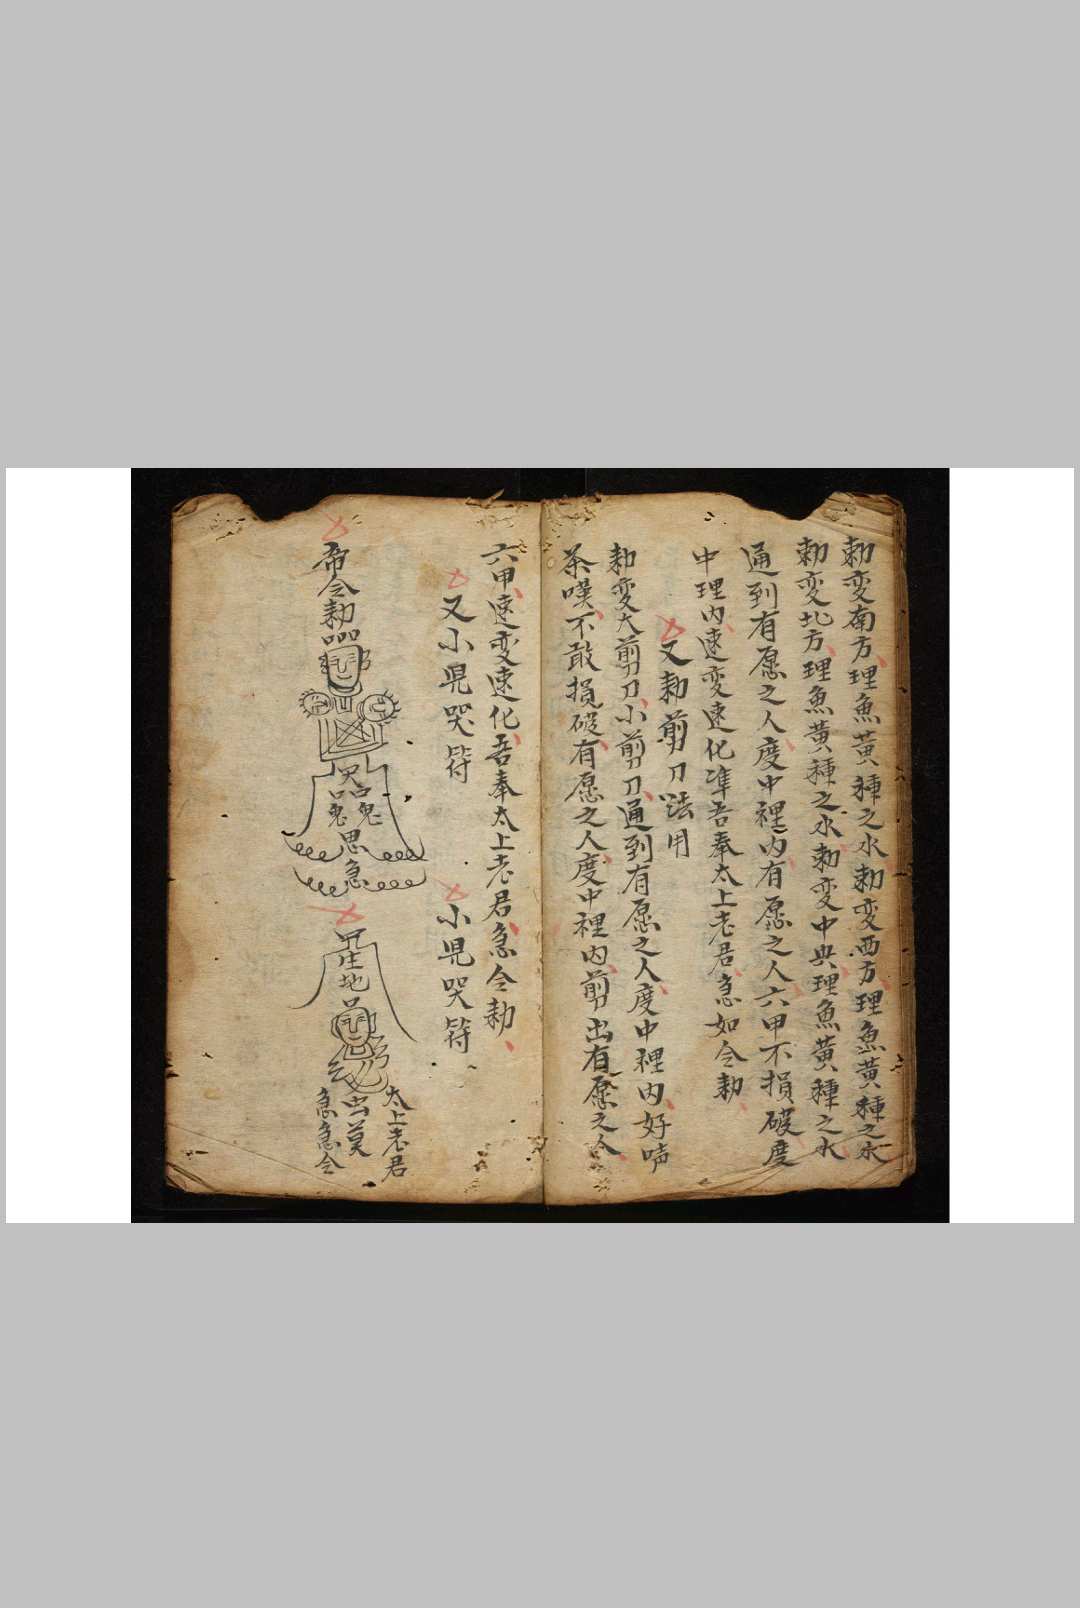 勅変南方理魚黄種之水勅変西方理魚黄種之水
勅変北方理魚黄種之水勅変中央理魚黄種之水
通到有愿之人度中裡内有愿之人六甲不損破度
中理内速変速化準吾奉太上老君急如令勅
又勅剪刀法用
勅変大剪刀小剪刀通到有愿之人度中裡内好声
茶嘆不敢損破有愿之人度中裡内剪出有愿之人
六甲速変速化吾奉太上老君急令勅
又小児哭符
小児哭符
令勅
思急
地
太上老君
急急令